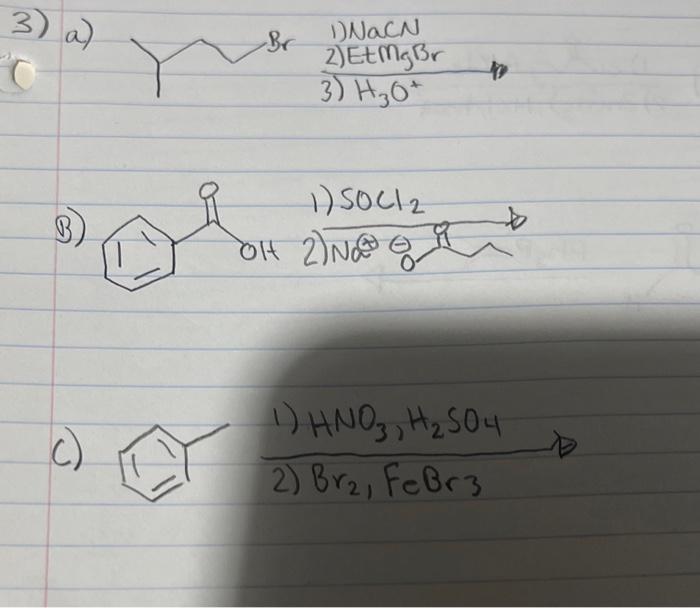 3) a) Br 1) NaCN
2) EtMgBr
3) H₃O⁺
B) O OH 1) SOCl₂
2) Na⊕ ⊖O O
C) 1) HNO₃, H₂SO₄
2) Br₂, FeBr₃